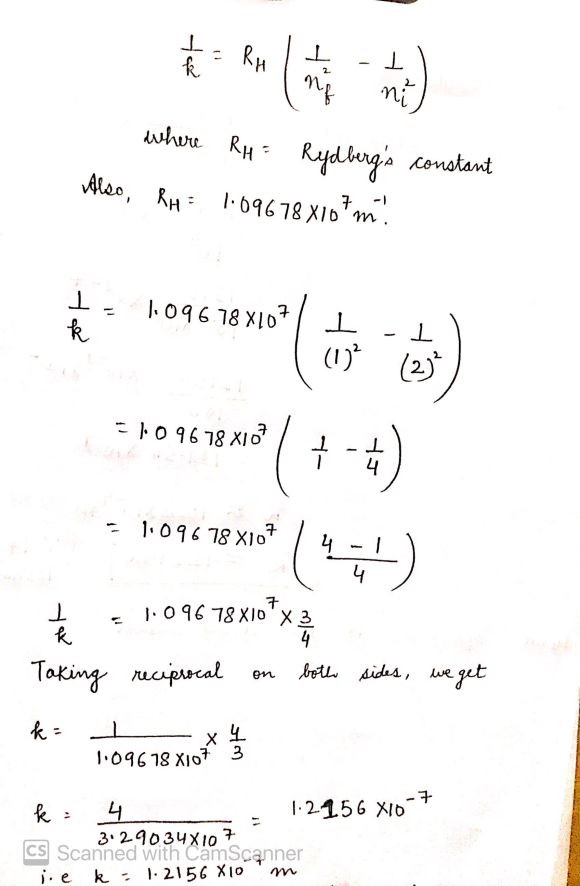 1/k = R_H ( 1/n_f² - 1/n_i² )
where R_H = Rydberg's constant
Also, R_H = 1.09678 X10⁷ m⁻¹.
1/k = 1.09678 X10⁷ ( 1/(1)² - 1/(2)² )
= 1.09678 X10⁷ ( 1/1 - 1/4 )
= 1.09678 X10⁷ ( (4 - 1)/4 )
1/k = 1.09678 X10⁷ X 3/4
Taking reciprocal on both sides, we get
k = 1/(1.09678 X10⁷) X 4/3
k = 4/(3.29034X10⁷) = 1.2156 X10⁻⁷
CS Scanned with CamScanner
i.e k = 1.2156 X10⁻⁷ m